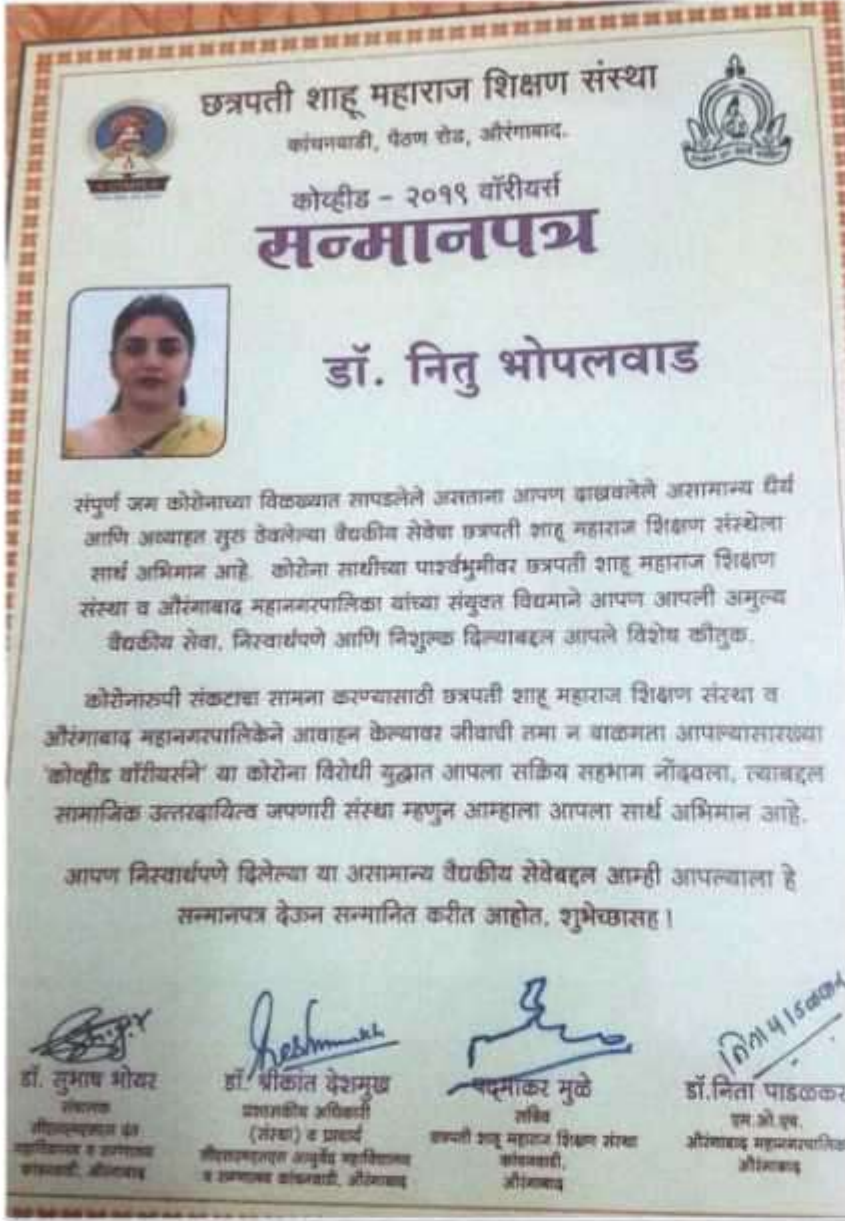 छत्रपती शाहू महाराज शिक्षण संस्था
कांचनवाडी, पैठण रोड, औरंगाबाद.
कोव्हीड - २०१९ वॉरीयर्स
सन्मानपत्र
डॉ. नितु भोपलवाड
संपुर्ण जग कोरोनाच्या विळख्यात सापडलेले असताना आपण दाखवलेले असामान्य धैर्य
आणि अव्याहत सुरु ठेवलेल्या वैद्यकीय सेवेचा छत्रपती शाहू महाराज शिक्षण संस्थेला
सार्थ अभिमान आहे. कोरोना साथीच्या पार्श्वभुमीवर छत्रपती शाहू महाराज शिक्षण
संस्था व औरंगाबाद महानगरपालिका यांच्या संयुक्त विद्यमाने आपण आपली अमुल्य
वैद्यकीय सेवा, निस्वार्थपणे आणि निशुल्क दिल्याबद्दल आपले विशेष कौतुक.
कोरोनारुपी संकटाचा सामना करण्यासाठी छत्रपती शाहू महाराज शिक्षण संस्था व
औरंगाबाद महानगरपालिकेने आवाहन केल्यावर जीवाची तमा न बाळगता आपल्यासारख्या
'कोव्हीड वॉरीयर्सने' या कोरोना विरोधी युद्धात आपला सक्रिय सहभाग नोंदवला, त्याबद्दल
सामाजिक उत्तरदायित्व जपणारी संस्था म्हणुन आम्हाला आपला सार्थ अभिमान आहे.
आपण निस्वार्थपणे दिलेल्या या असामान्य वैद्यकीय सेवेबद्दल आम्ही आपल्याला हे
सन्मानपत्र देऊन सन्मानित करीत आहोत. शुभेच्छासह !
Deshmukh
निता पाडळकर
डॉ. सुभाष भोयर
डॉ. श्रीकांत देशमुख
पद्माकर मुळे
डॉ.निता पाडळकर
संचालक
महाविद्यालय व रुग्णालय
कांचनवाडी, औरंगाबाद
प्रशासकीय अधिकारी
(संस्था) व प्राचार्य
आयुर्वेद महाविद्यालय
व रुग्णालय कांचनवाडी, औरंगाबाद
सचिव
छत्रपती शाहू महाराज शिक्षण संस्था
कांचनवाडी,
औरंगाबाद
एम.ओ.एच.
औरंगाबाद महानगरपालिका
औरंगाबाद